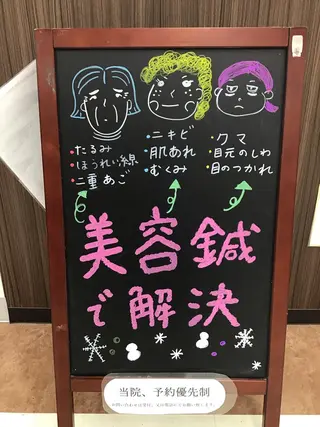 ・たるみ
・ほうれい線
・二重あご
・ニキビ
・肌あれ
・むくみ
・クマ
・目元のしわ
・目のつかれ
美容鍼
で解決
当院、予約優先制